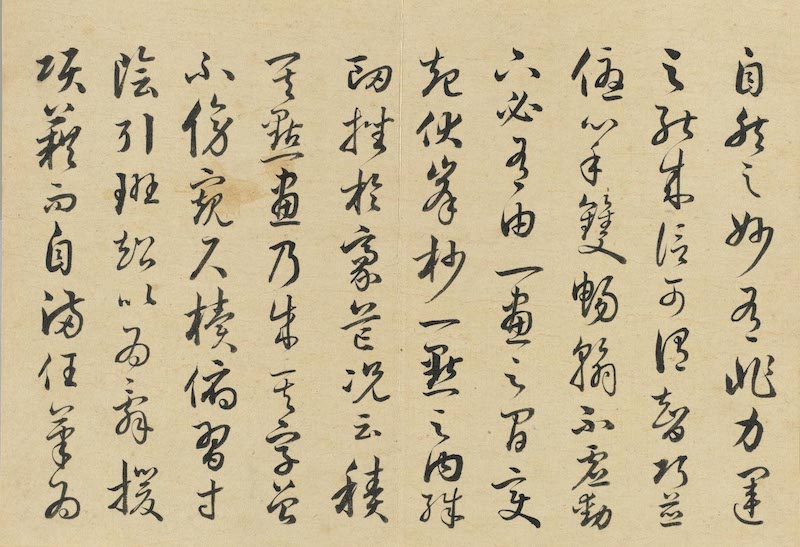 自然之妙有非力運
之能成信可謂智巧兼
優心手雙暢翰不虛動
下必有由一畫之間變
起伏峯杪一點之內殊
衄挫於豪芒况云積
其點畫乃成其字曾
不傍窺尺櫝俯習寸
陰引班超以為辭援
項籍而自滿任筆為